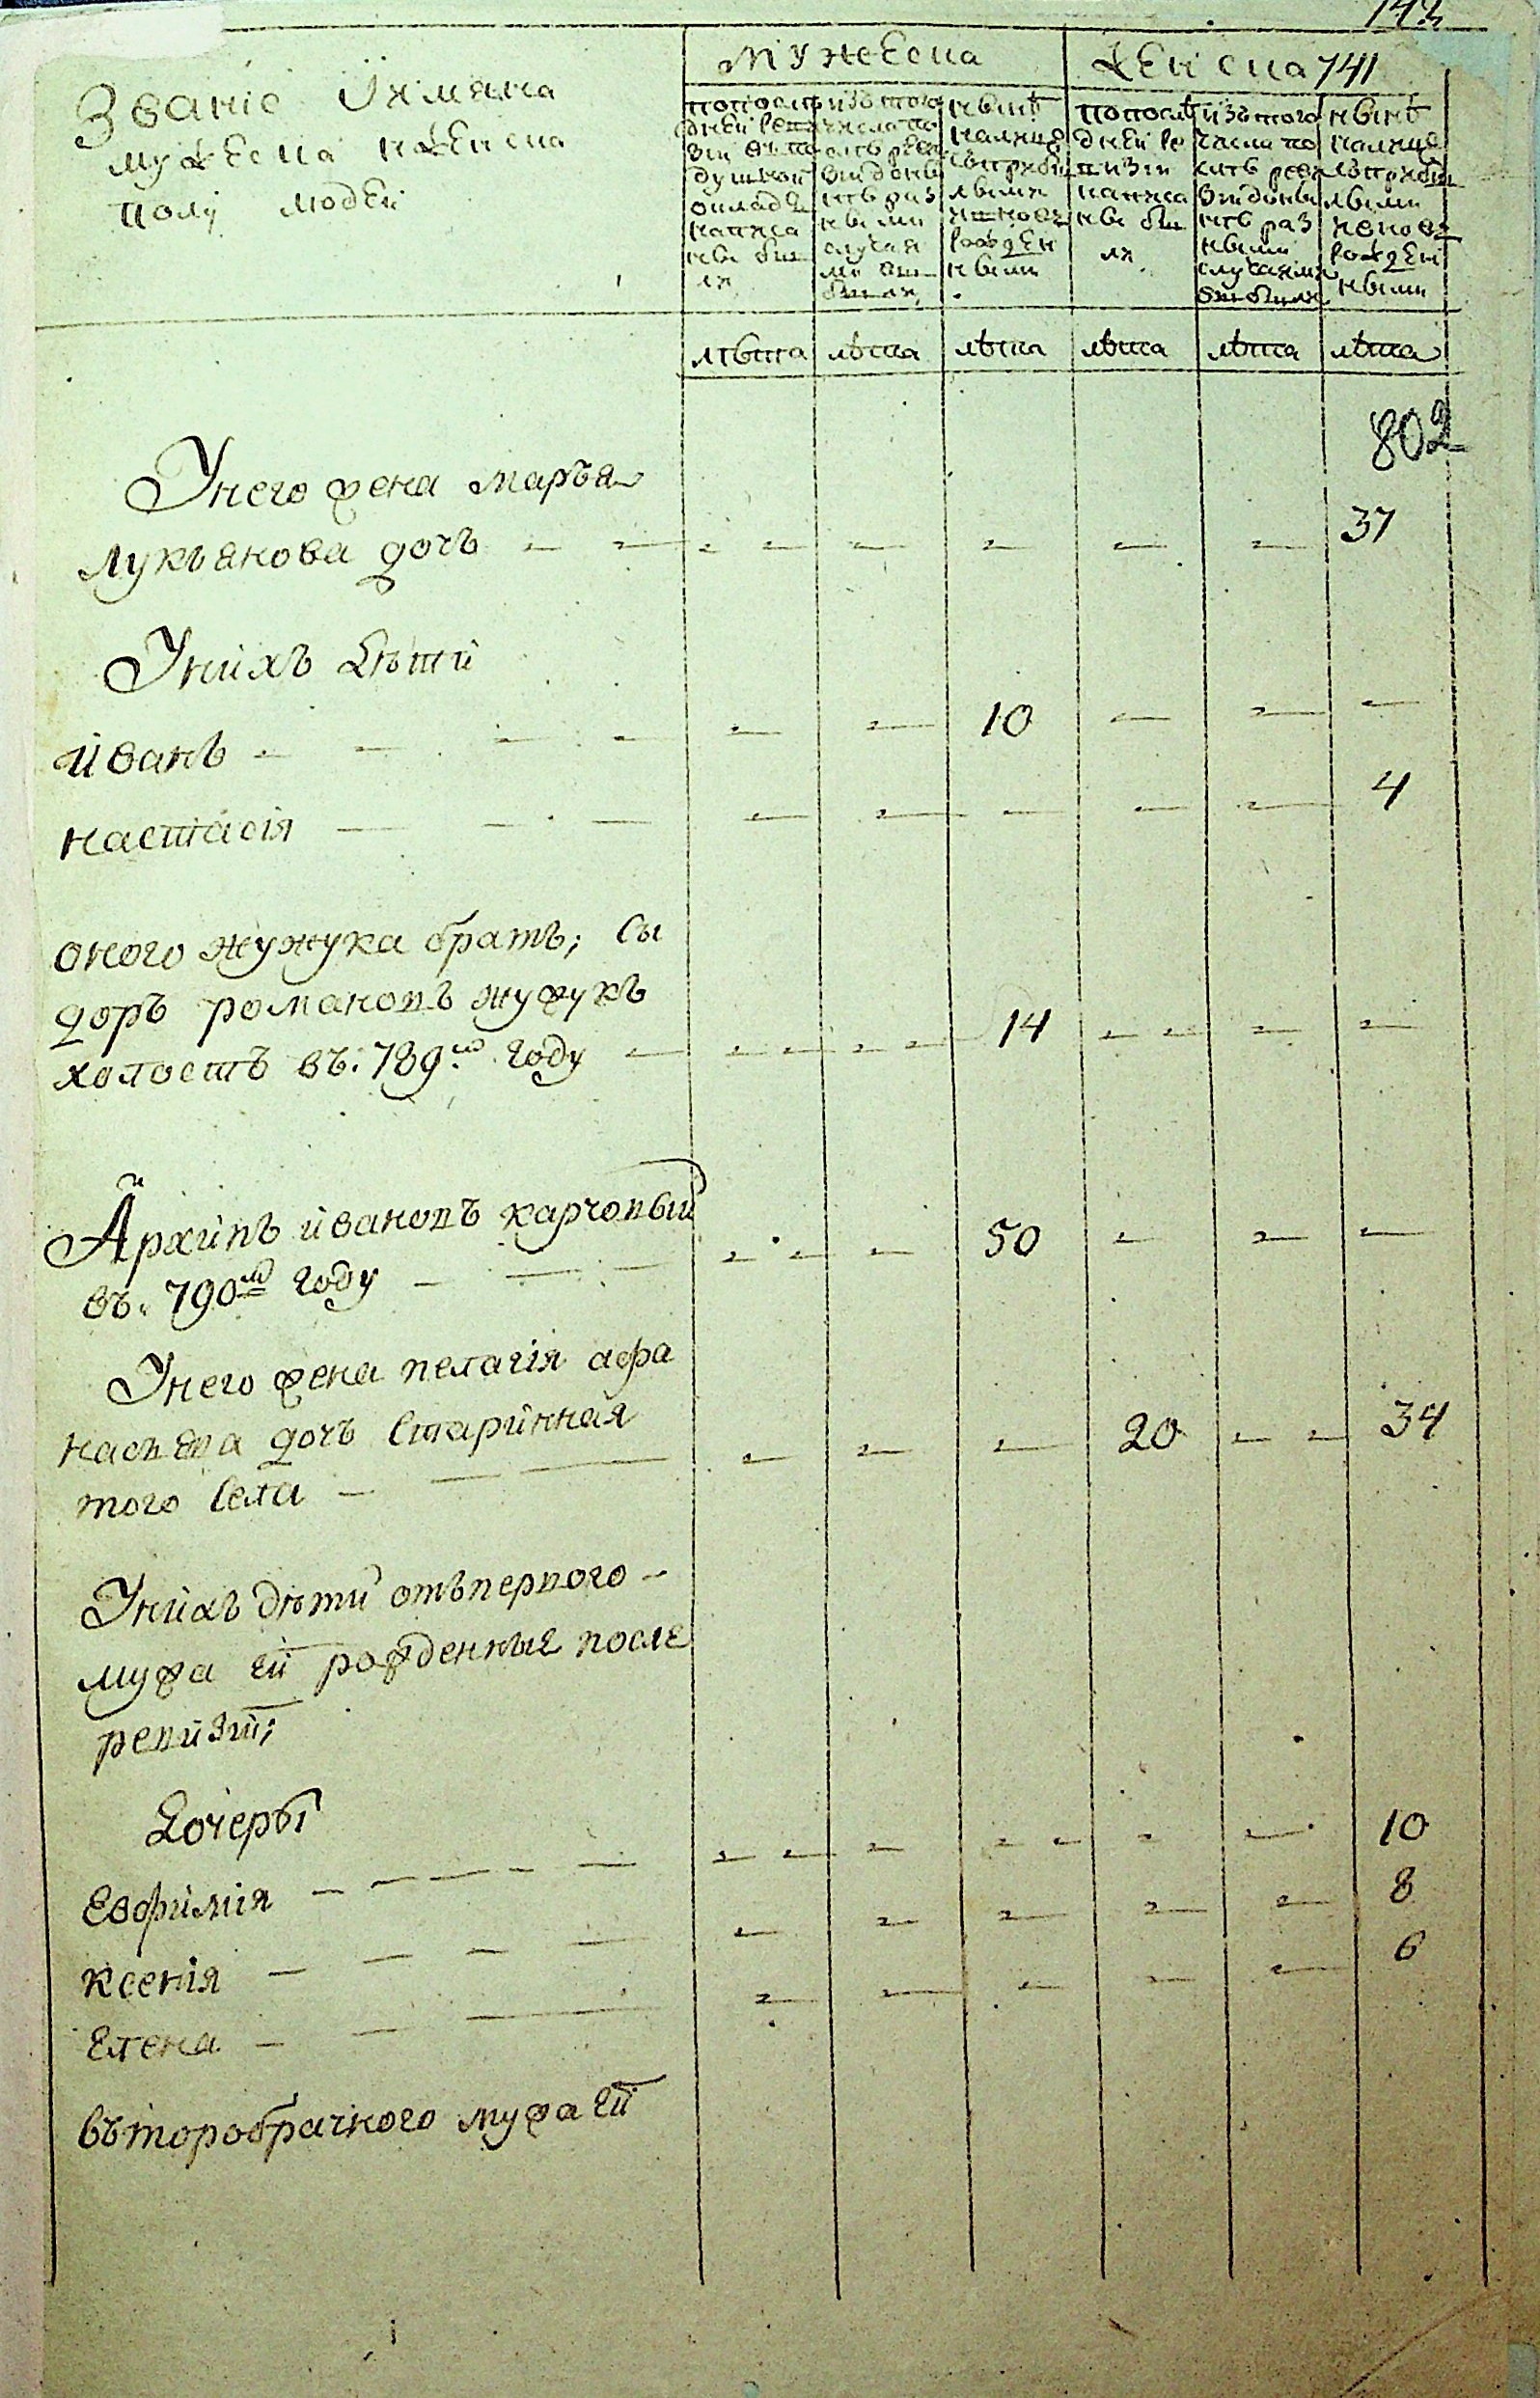 142
Званіе и имяна
мужеска и женска
полу людей
мужеска
женска 741
по последней ревизіи въ подушной окладъ написаны были
изъ того числа по силѣ ревизіи до нынѣ разными случаями выбыли
нынѣ на лицо съ прибылыми и новорожденными
по последней ревизіи написаны были
изъ того числа по силѣ ревизіи до нынѣ разными случаями выбыли
нынѣ на лицо съ прибылыми и новорожденными
лѣта лѣта лѣта лѣта лѣта лѣта
802
У него жена маръя
лукъянова дочъ — — — — — — — — 37
У нихъ дѣти
иванъ — — — — — — 10 — — —
настасія — — — — — — — — 4
оного жужука братъ; Сы
доръ романовъ жужукъ
холостъ въ: 789.м году — — — — — 14 — — — —
Архипъ ивановъ карчовый
въ: 790м году — — — — — — 50 — — —
У него жена пелагія афа
насьева дочъ Старинная
того Села — — — — — — 20 — — 34
У нихъ дѣти отъ первого —
мужа ей рожденные после
ревизіи;
Дочеры
Евфимія — — — — — — — — — — — — 10
ксенія — — — — — — — — — 8
Елена — — — — — — — — 6
въторобрачного мужа ей